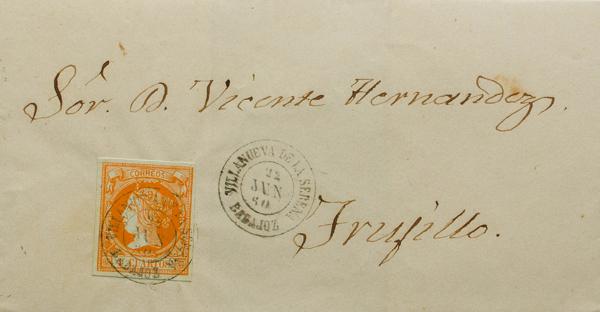 Sór. D. Vicente Hernandez.
VILLANUEVA DE LA SERENA
22
JUN
60
BADAJOZ
Trujillo.
CORREOS
4 CUARTOS